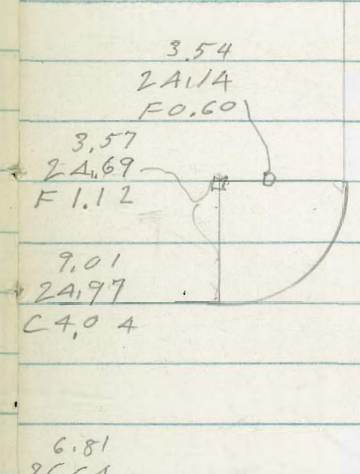 3.54
24.14
F 0.60
3.57
24.69
F 1.12
9.01
24.97
C 4.04
6.81